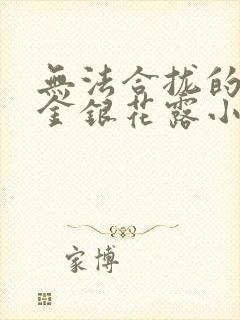 無法合拢的
金銀花露小
家博